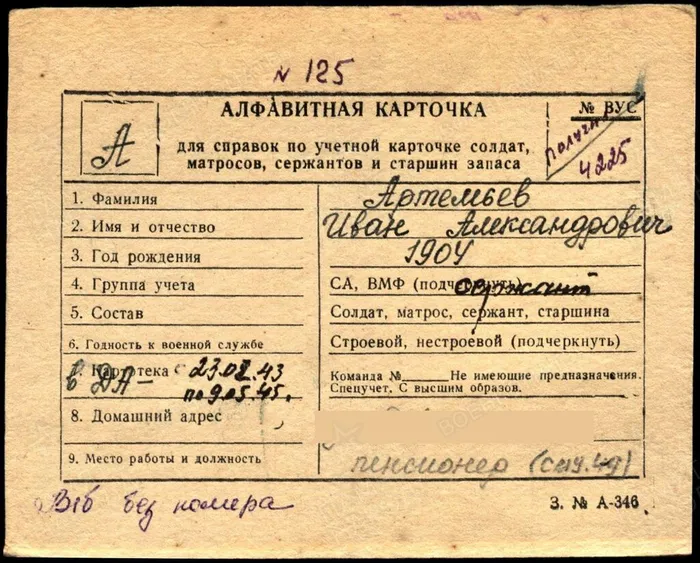 № 125
А
АЛФАВИТНАЯ КАРТОЧКА
для справок по учетной карточке солдат,
матросов, сержантов и старшин запаса
№ ВУС
4225
1. Фамилия
Артемьев
2. Имя и отчество
Иван Александрович
3. Год рождения
1904
4. Группа учета
СА, ВМФ (подчеркнуть)
сержант
5. Состав
Солдат, матрос, сержант, старшина
6. Годность к военной службе
Строевой, нестроевой (подчеркнуть)
7. Картотека
в ДА - с 23.02.43
по 9.05.45.
Команда № Не имеющие предназначения.
Спецучет. С высшим образов.
8. Домашний адрес
9. Место работы и должность
пенсионер
В/б без номера
З. № А-346